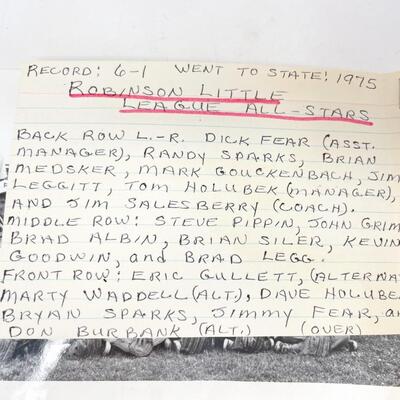 RECORD: 6-1 WENT TO STATE! 1975
ROBINSON LITTLE
LEAGUE ALL-STARS
BACK ROW L.-R. DICK FEAR (ASST.
MANAGER), RANDY SPARKS, BRIAN
MEDSKER, MARK GOUCKENBACH, JIM
LEGGITT, TOM HOLUBEK (MANAGER),
AND JIM SALESBERRY (COACH).
MIDDLE ROW: STEVE PIPPIN, JOHN GRIM
BRAD ALBIN, BRIAN SILER, KEVIN
GOODWIN, and BRAD LEGG.
FRONT ROW: ERIC GULLETT, (ALTERNA
MARTY WADDELL (ALT.), DAVE HOLUBE
BRYAN SPARKS, JIMMY FEAR, an
DON BURBANK (ALT.) (OVER)